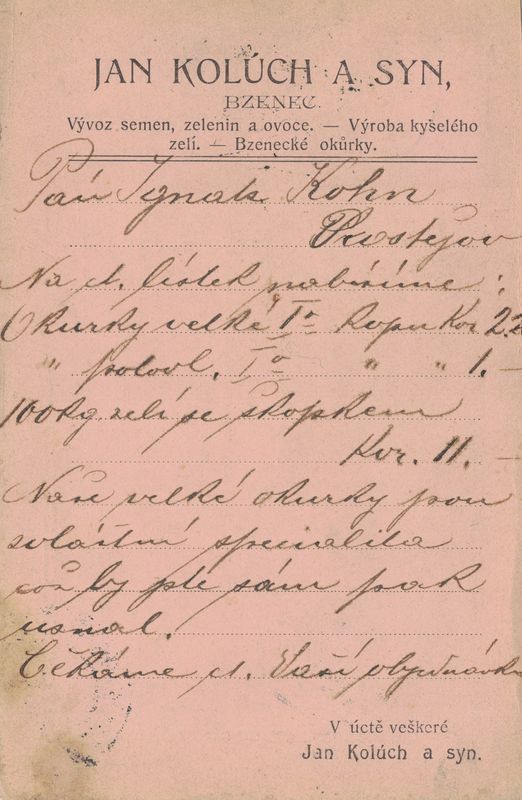 JAN KOLÚCH A SYN,
BZENEC.
Vývoz semen, zelenin a ovoce. — Výroba kyšelého
zelí. — Bzenecké okůrky.
Pán Ignatz Kohn
Prostějov
Na ct. lístek nabízíme:
Okurky velké Iᵃ kopu Kor. 2.
" polovl. Iᵃ " " 1.—
100 kg. zelí se škopkem
Kor. 11.—
Naše velké okurky jsou
zvláštní specialita
což by pte sám pak
uznal.
Čékáme ct. Vaší objednávku
V úctě veškeré
Jan Kolúch a syn.